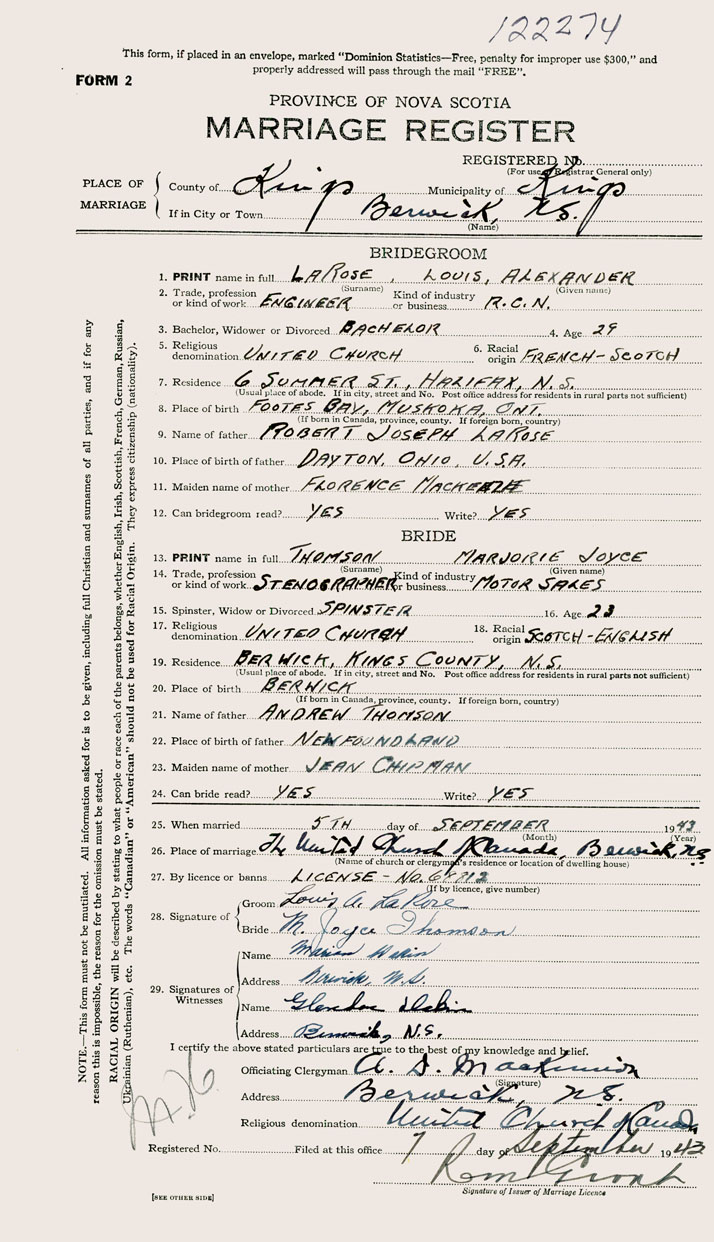 122274
This form, if placed in an envelope, marked "Dominion Statistics—Free, penalty for improper use $300," and
properly addressed will pass through the mail "FREE".
FORM 2
PROVINCE OF NOVA SCOTIA
MARRIAGE REGISTER
REGISTERED No.
(For use of Registrar General only)
PLACE OF MARRIAGE
County of Kings Municipality of Kings
If in City or Town Berwick, N.S.
(Name)
BRIDEGROOM
1. PRINT name in full LAROSE, LOUIS, ALEXANDER
(Surname) (Given name)
2. Trade, profession or kind of work ENGINEER Kind of industry or business R.C.N.
3. Bachelor, Widower or Divorced BACHELOR 4. Age 29
5. Religious denomination UNITED CHURCH 6. Racial origin FRENCH-SCOTCH
7. Residence 6 SUMMER ST., HALIFAX, N.S.
(Usual place of abode. If in city, street and No. Post office address for residents in rural parts not sufficient)
8. Place of birth FOOTES BAY, MUSKOKA, ONT.
(If born in Canada, province, county. If foreign born, country)
9. Name of father ROBERT JOSEPH LAROSE
10. Place of birth of father DAYTON, OHIO, U.S.A.
11. Maiden name of mother FLORENCE
12. Can bridegroom read? YES Write? YES
BRIDE
13. PRINT name in full THOMSON MARJORIE JOYCE
(Surname) (Given name)
14. Trade, profession or kind of work STENOGRAPHER Kind of industry or business MOTOR SALES
15. Spinster, Widow or Divorced SPINSTER 16. Age 23
17. Religious denomination UNITED CHURCH 18. Racial origin SCOTCH-ENGLISH
19. Residence BERWICK, KINGS COUNTY, N.S.
(Usual place of abode. If in city, street and No. Post office address for residents in rural parts not sufficient)
20. Place of birth BERWICK
(If born in Canada, province, county. If foreign born, country)
21. Name of father ANDREW THOMSON
22. Place of birth of father NEWFOUNDLAND
23. Maiden name of mother JEAN CHIPMAN
24. Can bride read? YES Write? YES
25. When married 5TH day of SEPTEMBER 1943
(Month) (Year)
26. Place of marriage The United Church of Canada, Berwick, N.S.
(Name of church or clergyman's residence or location of dwelling house)
27. By licence or banns LICENSE - No.
(If by licence, give number)
28. Signature of
Groom Louis A. LaRose
Bride M. Joyce Thomson
29. Signatures of Witnesses
Name Marian
Address Berwick, N.S.
Name
Address Berwick, N.S.
I certify the above stated particulars are true to the best of my knowledge and belief.
Officiating Clergyman
(Signature)
Address Berwick, N.S.
Religious denomination United Church of Canada
Registered No. Filed at this office 7 day of September 1943
Signature of Issuer of Marriage Licence
[SEE OTHER SIDE]
NOTE.—This form must not be mutilated. All information asked for is to be given, including full Christian and surnames of all parties, and if for any
reason this is impossible, the reason for the omission must be stated.
RACIAL ORIGIN will be described by stating to what people or race each of the parents belongs, whether English, Irish, Scottish, French, German, Russian,
Ukrainian (Ruthenian), etc. The words "Canadian" or "American" should not be used for Racial Origin. They express citizenship (nationality).